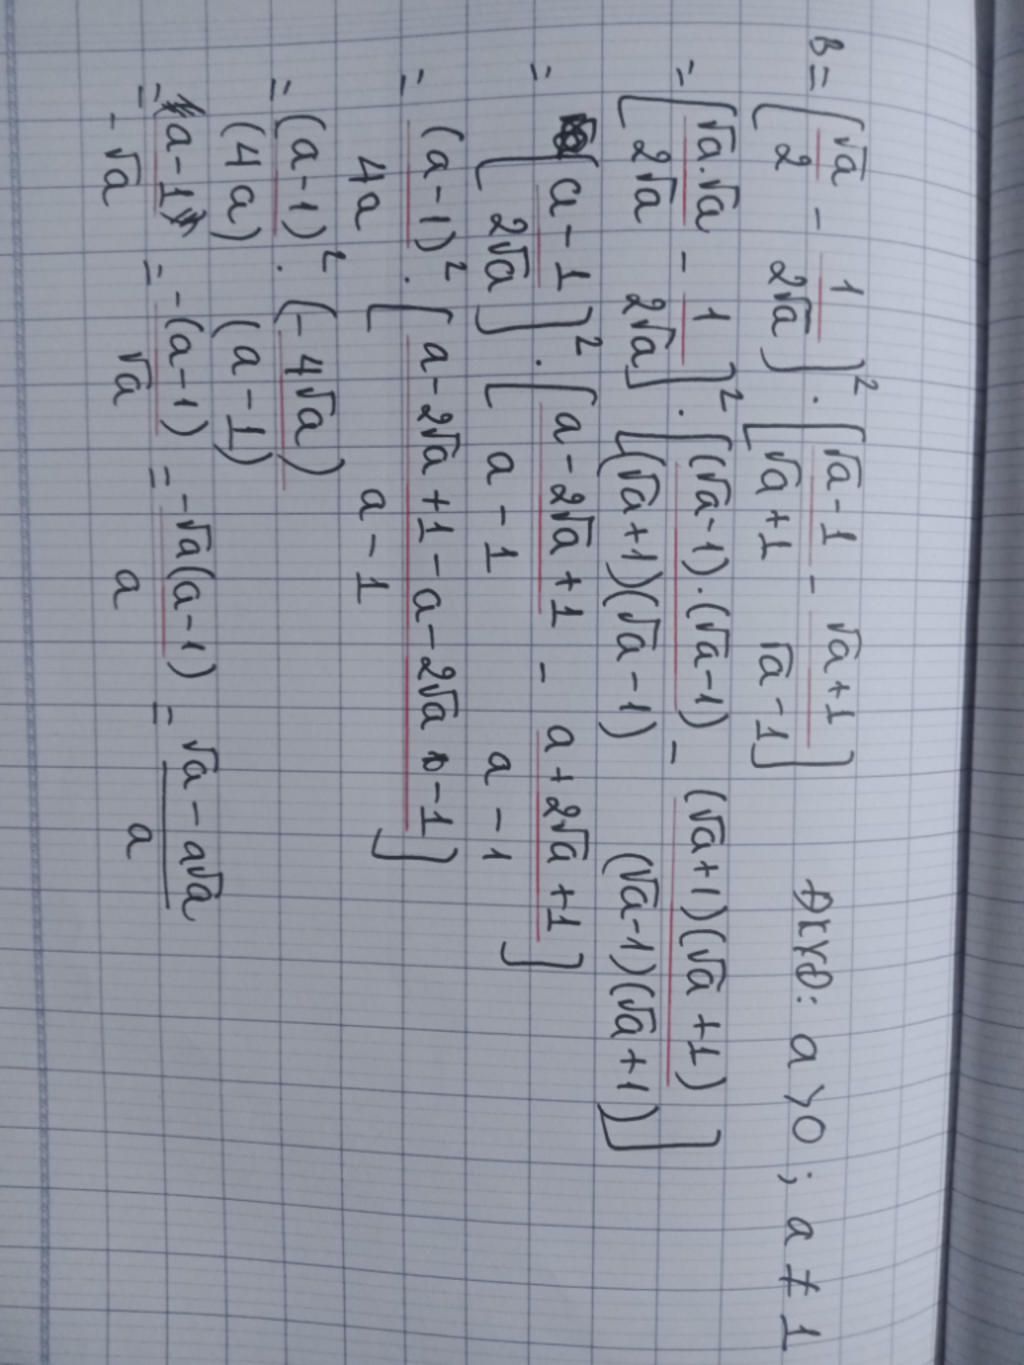 B = [√a/2 - 1/2√a]² . [√a-1/√a+1 - √a+1/√a-1] ĐKXĐ: a > 0 ; a ≠ 1
= [√a.√a/2√a - 1/2√a]² . [(√a-1).(√a-1)/(√a+1)(√a-1) - (√a+1)(√a+1)/(√a-1)(√a+1)]
= [a-1/2√a]² . [a-2√a+1/a-1 - a+2√a+1/a-1]
= (a-1)²/4a . [a-2√a+1-a-2√a-1/a-1]
= (a-1)²/(4a) . (-4√a)/(a-1)
= (a-1)/-√a = -(a-1)/√a = -√a(a-1)/a = √a-a√a/a